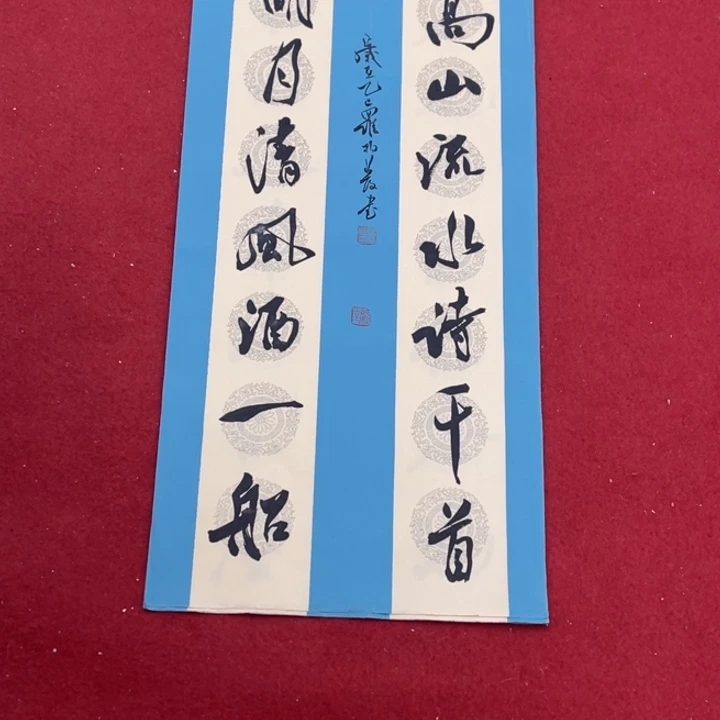 高山流水诗千首
明月清风酒一船
岁在乙巳罗 书